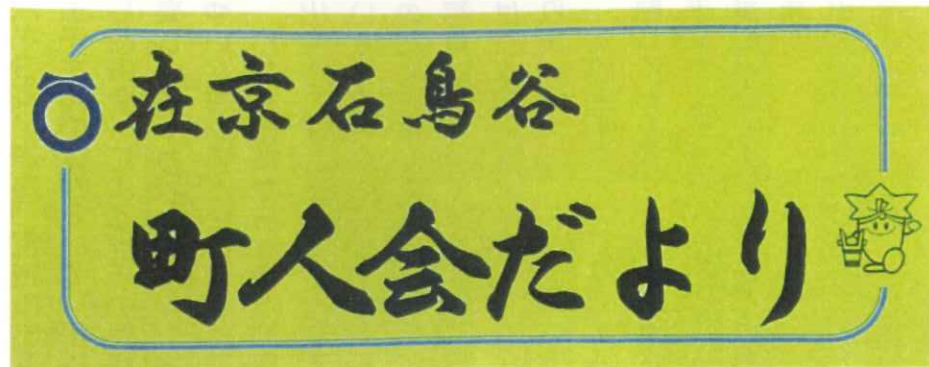 在京石鳥谷
町人会だより